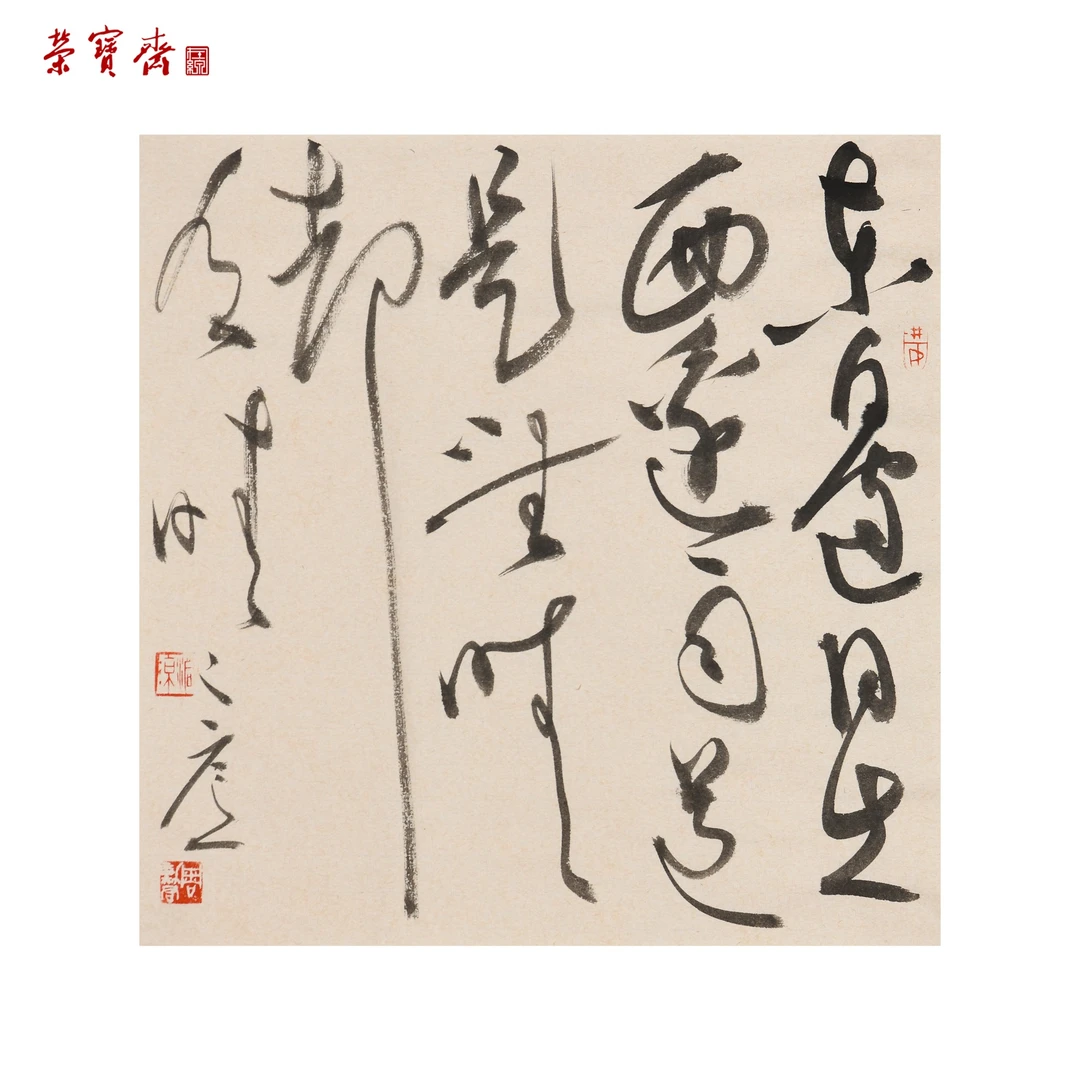 榮寶齋
東邊日出
西邊雨道
是無晴
却
有晴